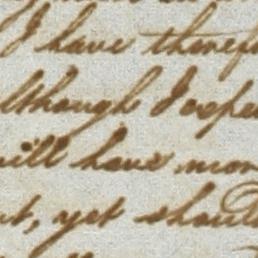 I have theref
lthough I expe
will have mor
ut, yet shoul